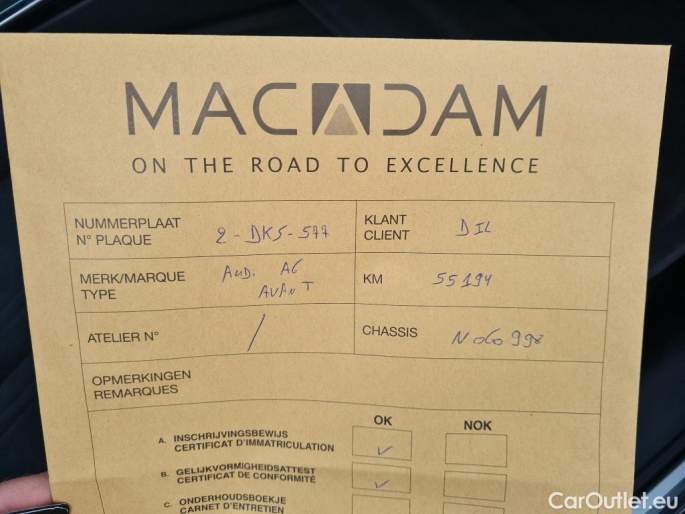 MACADAM
ON THE ROAD TO EXCELLENCE
NUMMERPLAAT
N° PLAQUE
2-DKS-577
KLANT
CLIENT
DIL
MERK/MARQUE
TYPE
AUDI A6
AVANT
KM
55194
ATELIER N°
/
CHASSIS
N060998
OPMERKINGEN
REMARQUES
OK
NOK
A. INSCHRIJVINGSBEWIJS
CERTIFICAT D'IMMATRICULATION
✓
B. GELIJKVORMIGHEIDSATTEST
CERTIFICAT DE CONFORMITÉ
✓
C. ONDERHOUDSBOEKJE
CARNET D'ENTRETIEN
CarOutlet.eu